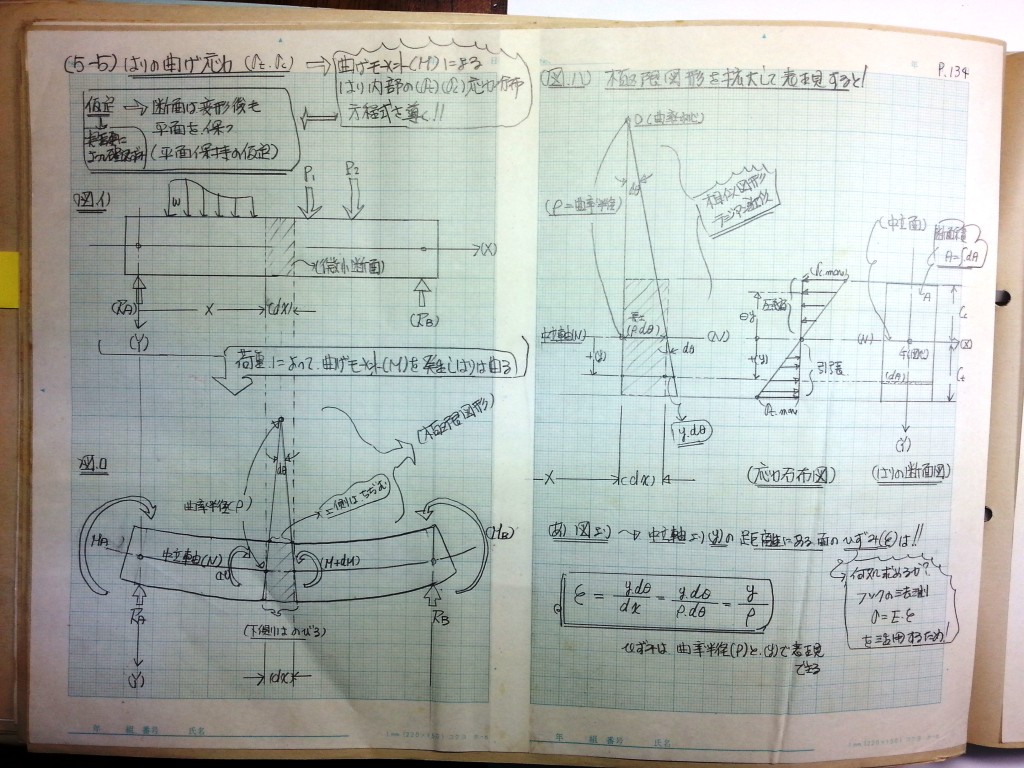 (5-5) はりの曲げ応力 (σt.σc)
⇒ 曲げモーメント(M)による
はり内部の(σt)(σc)応力分布
方程式を導く!!
仮定 → 断面は変形後も
平面を保つ
(平面保持の仮定)
(図.イ)
P1
P2
w
(X)
(微小断面)
(RA)
X
(dx)
(RB)
(Y)
荷重によって、曲げモーメント(M)を発生しはりは曲る
(極限図形)
図.ロ
dθ
曲率半径(ρ)
上側はちぢむ
MA
(MB)
中立軸(N)
(M+dM)
RA
RB
(下側はのびる)
(dx)
(Y)
年 組 番号 氏名
P.134
(図.ハ) 極限図形を拡大して表現すると!
O(曲率中心)
dθ
(ρ=曲率半径)
相似図形
ラジアン
(中立面)
A=∫dA
σc.max
A
圧縮
⊖y
(ρ.dθ)
中立軸(N)
(N)
(N)
G(図心)
(X)
dθ
+(y)
+(y)
引張
(dA)
σt.max
y.dθ
(Y)
X
(dx)
(応力分布図)
(はりの断面図)
(あ) 図より → 中立軸より(y)の距離にある面のひずみ(ε)は!!
ε = y.dθ/dx = y.dθ/ρ.dθ = y/ρ
何故求めるか?
フックの法則
σ=E.ε
を活用するため!
ひずみは 曲率半径(ρ)と、(y)で表現
できる
年 組 番号 氏名